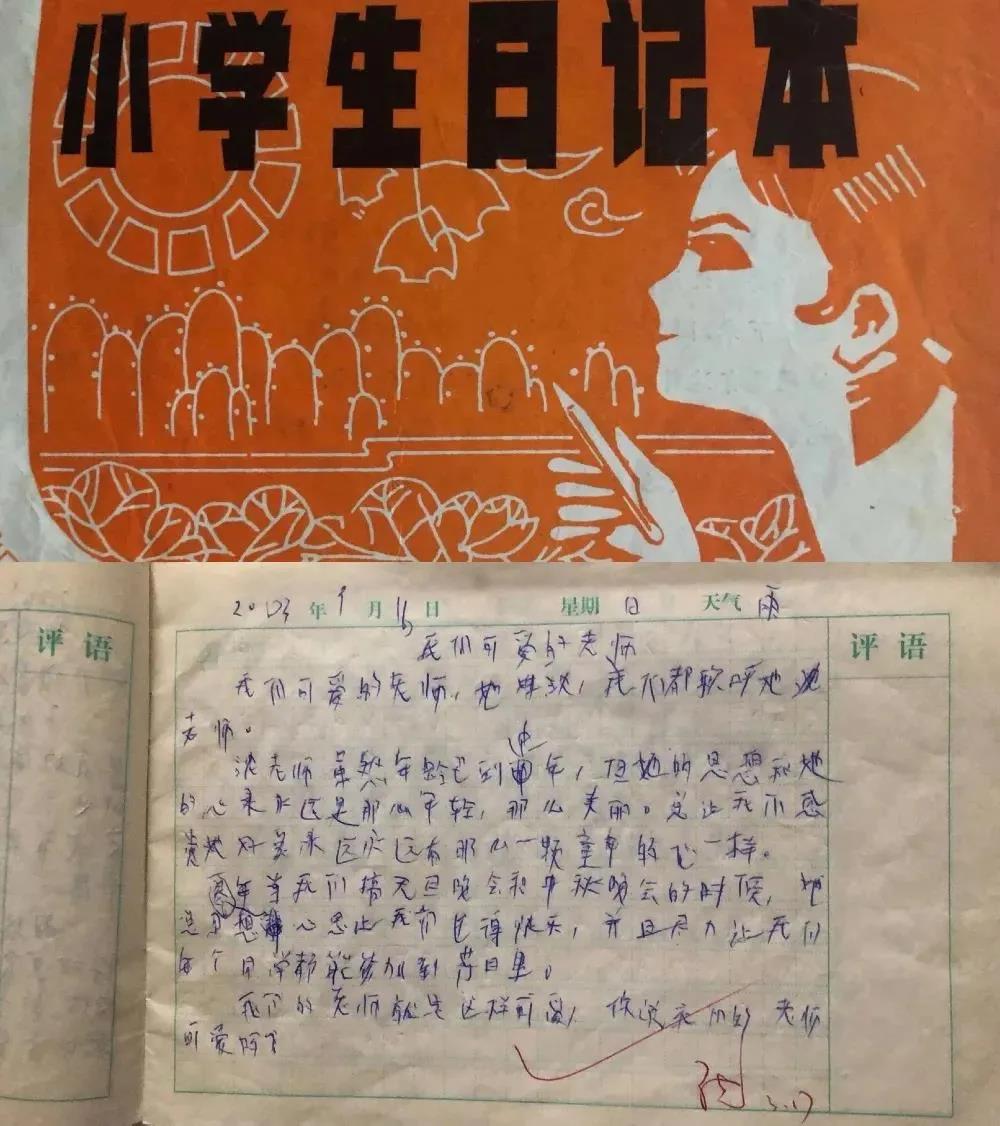 小学生日记本
评语
2003年9月16日 星期日 天气雨
评语
我们可爱的老师
我们可爱的老师，她姓沈，我们都称呼她沈
老师。
沈老师虽然年龄已到中年，但她的思想和她
的心永远是那么年轻，那么美丽。总让我们感
觉她好象永远永远有那么一颗童年的心一样。
每年当我们搞元旦晚会和中秋晚会的时候，她
总是想 心思让我们 得快乐，并且尽力让我们
每个同学都能参加到节目里。
我们的老师就是这样可爱，你说我们的老师
可爱吗？